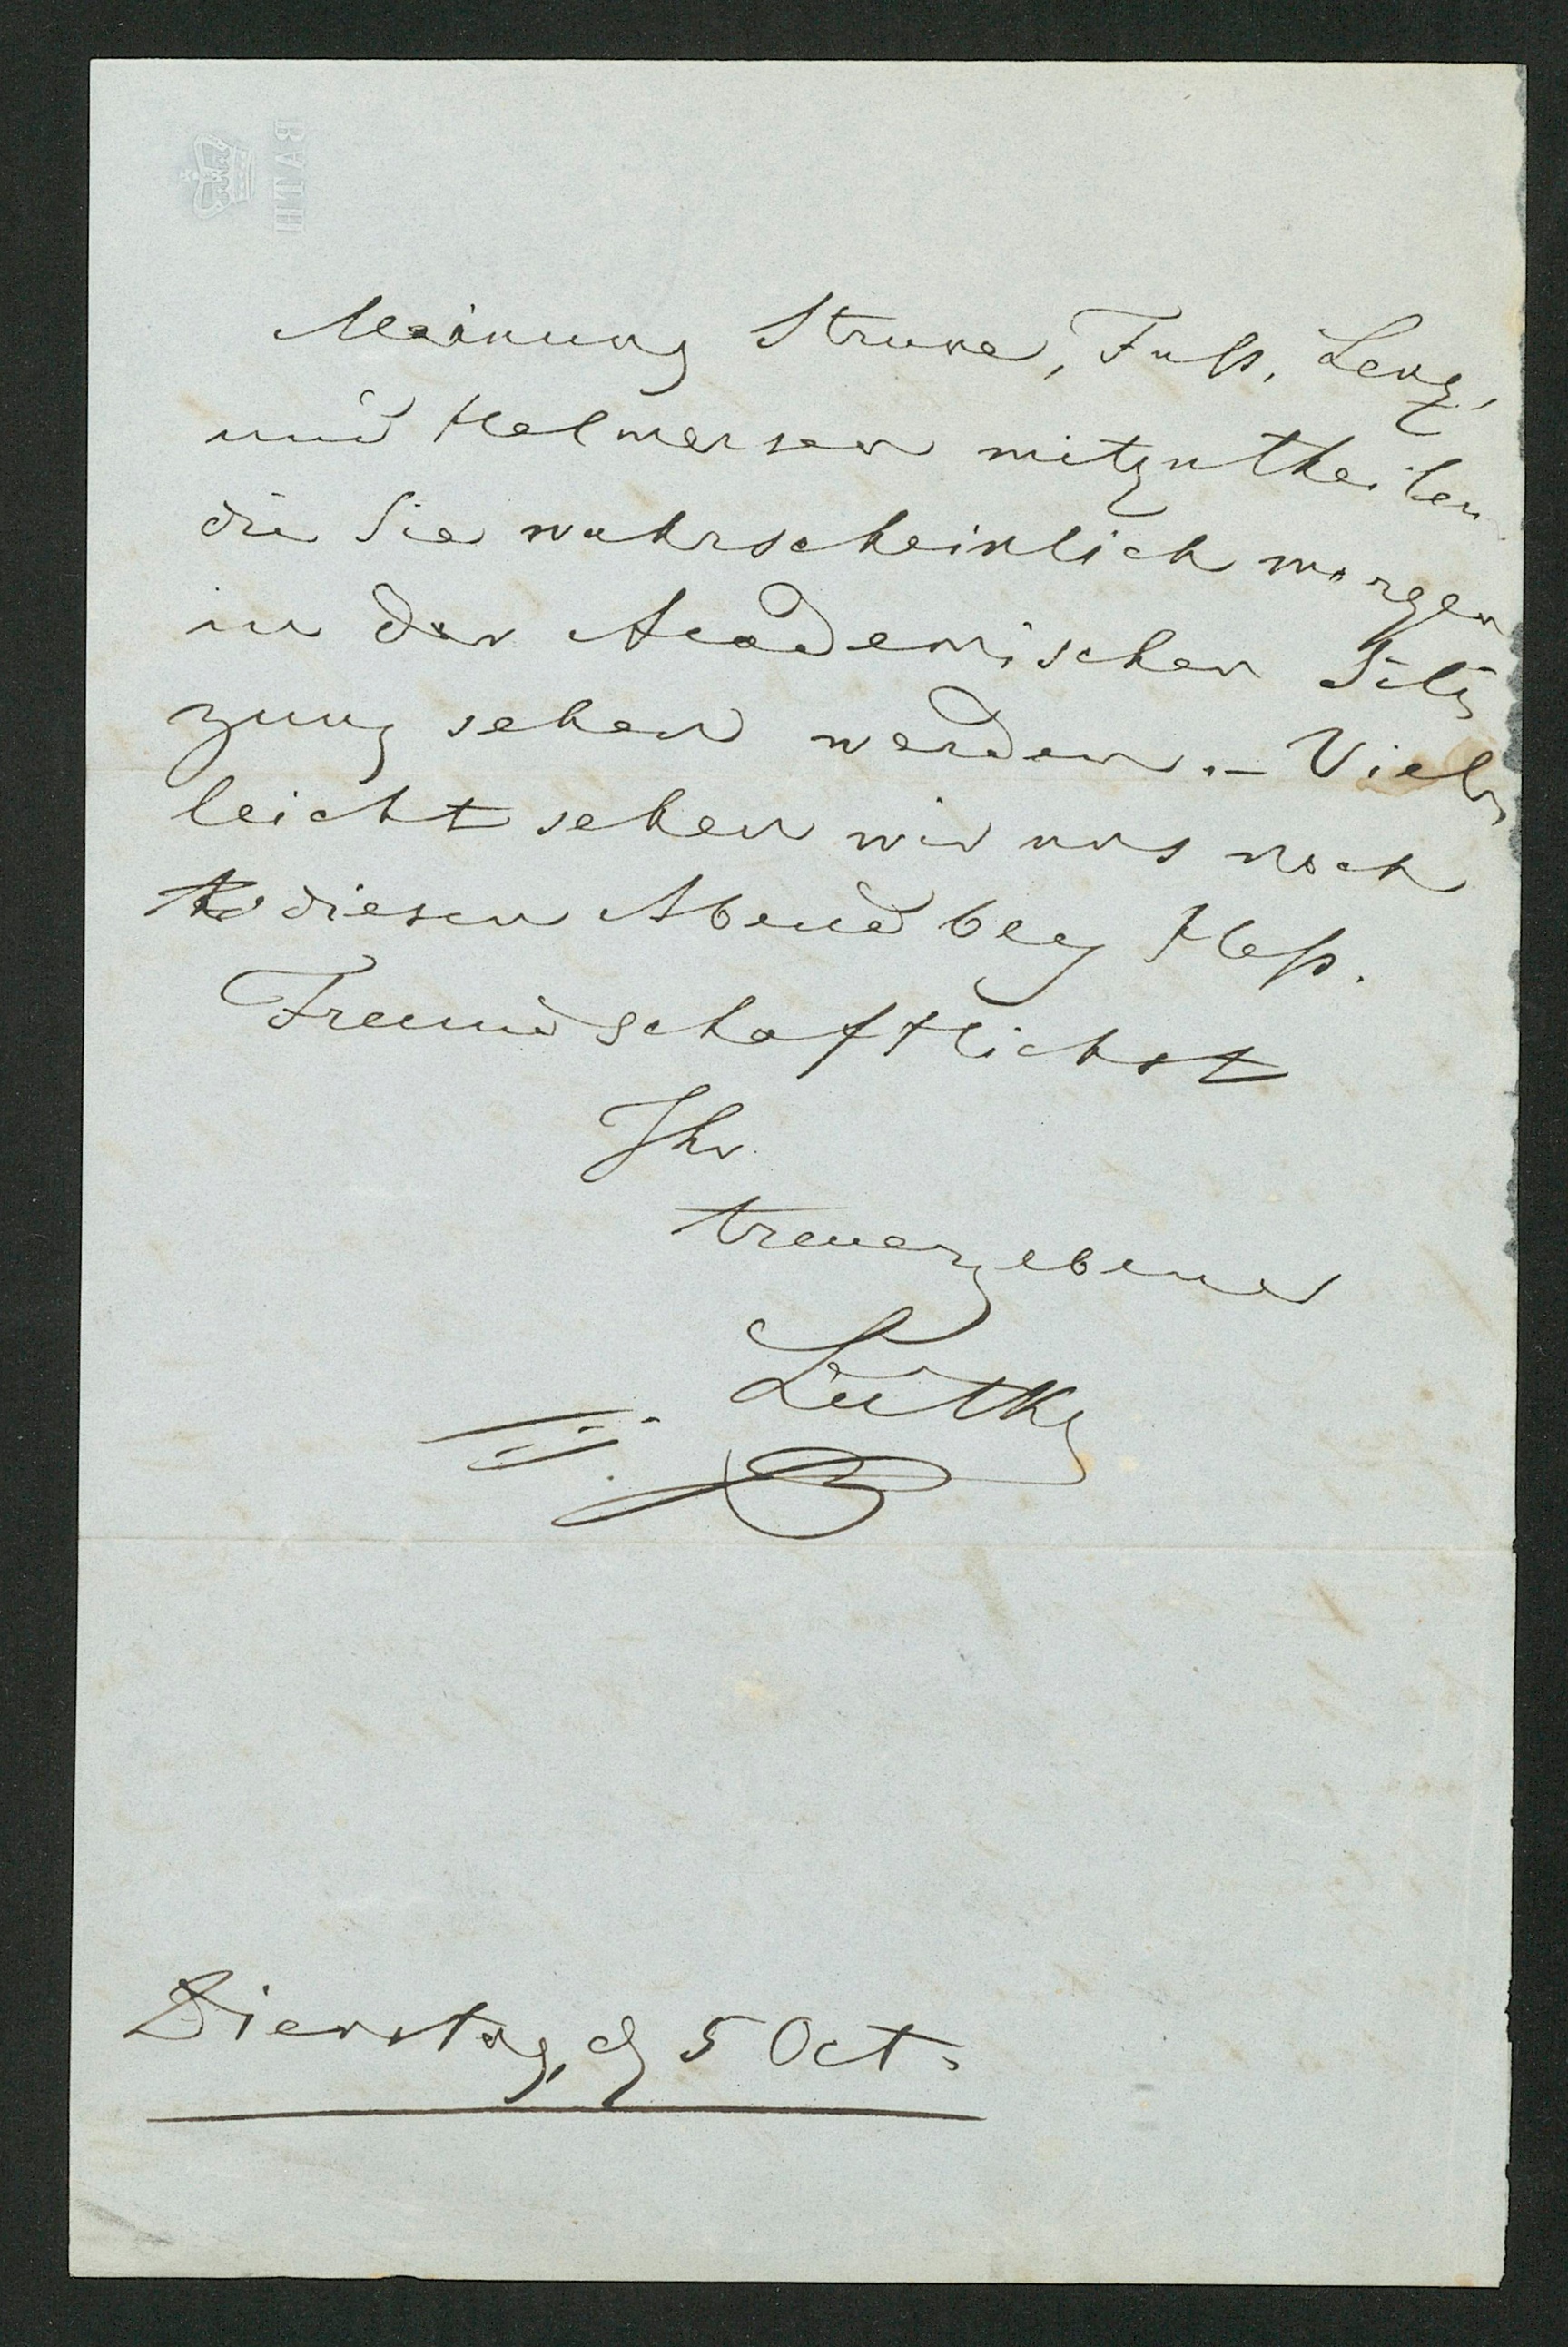 BATH
Meinung Struve, Fuß, Lenz,
und Helmersen mitzutheilen
die Sie wahrscheinlich morgen
in der Academischen Sitz
zung sehen werden. – Viel
leicht sehen wir uns noch
diesen Abend bey Heß.
Freundschaftlichst
Ihr
treuergebener
Lütke
Dienstag, d 5 Oct.